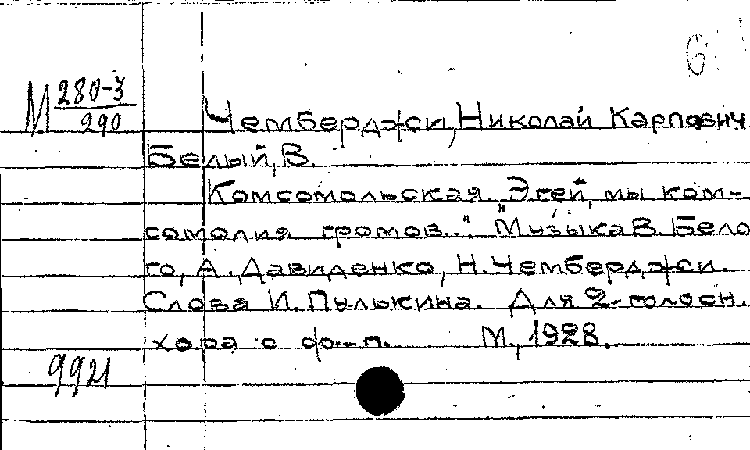 М 280-3
290
Чемберджи, Николай Карпович
Белый, В.
Комсомольская. "Эгей, мы ком-
сомолия громов..." Музыка В. Бело
го, А. Давиденко, Н. Чемберджи.
Слова И. Пулькина. Для 2-голосн.
хора с ф.-п. М., 1928.
9921